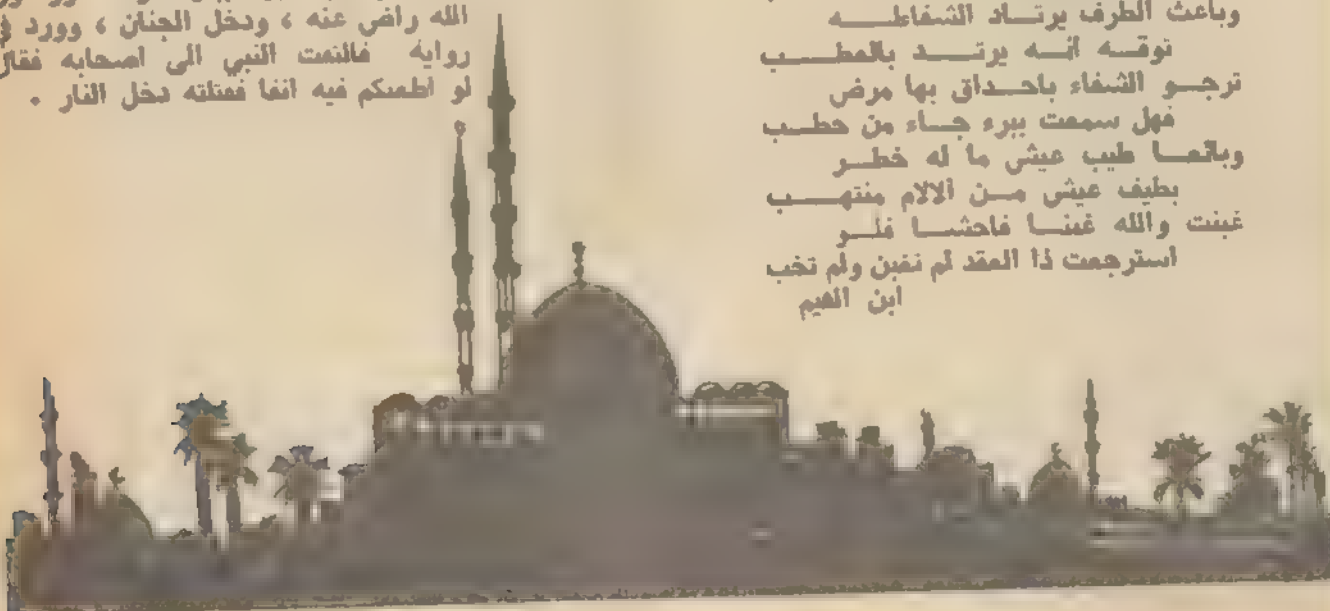 وباعث الطرف يرتــاد الشفاء لــه
توقــه انــه يرتــد بالعطــب
ترجــو الشفاء باحــداق بها مرض
فهل سمعت ببرء جــاء من عطــب
وبائعــا طيب عيش ما له خطــر
بطيف عيش مــن الالام منتهــب
غبنت والله غبنــا فاحشــا فلــو
استرجعت ذا العقد لم تغبن ولم تخب
ابن القيم
الله راضي عنه ، ودخل الجنان ، وورد في
رواية فالتفت النبي الى اصحابه فقال
لو اطعتكم فيه انفا فقتلته دخل النار .